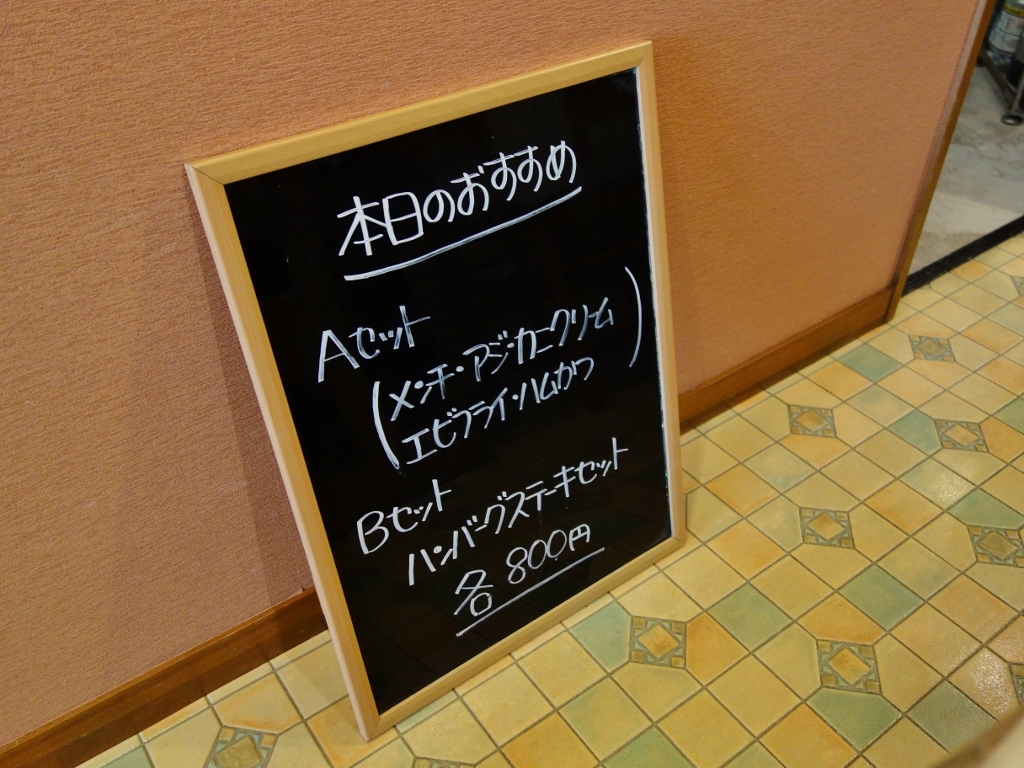 本日のおすすめ
Aセット
(メンチ・アジ・カニクリーム
エビフライ・ハムカツ)
Bセット
ハンバーグステーキセット
各 800円